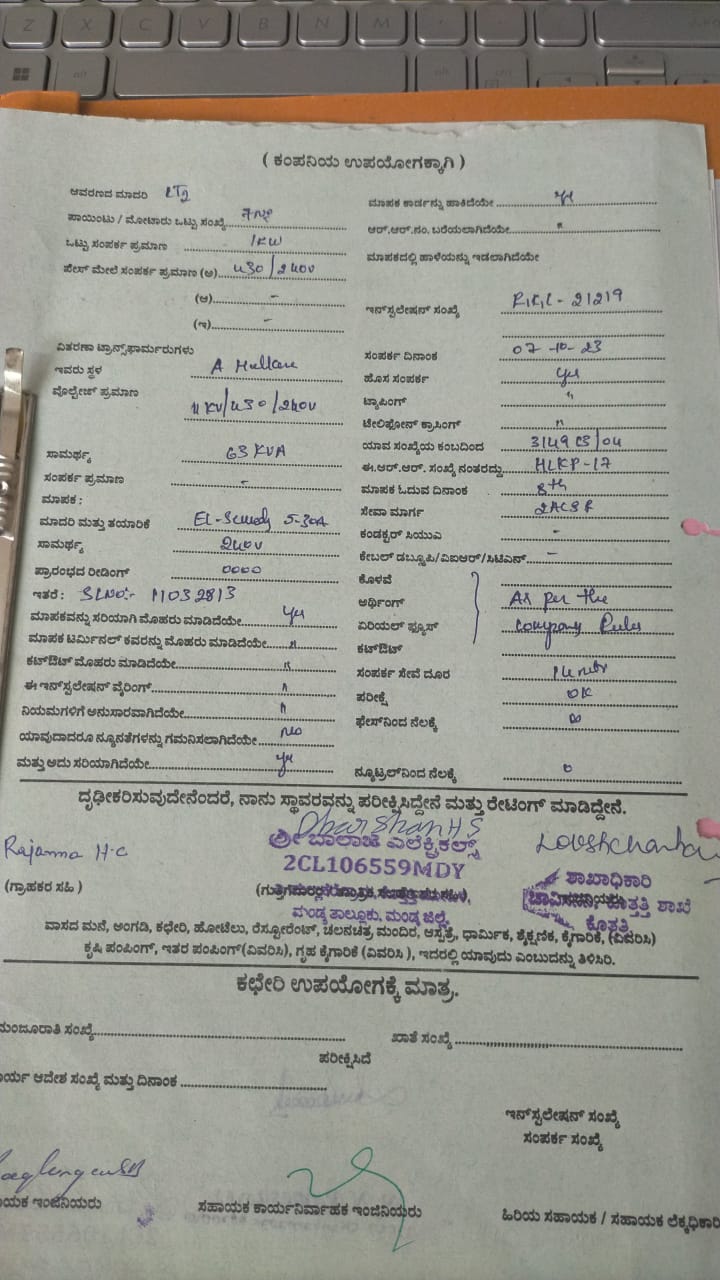 Z X C V B N M
alt alt ctrl
( ಕಂಪನಿಯ ಉಪಯೋಗಕ್ಕಾಗಿ )
ಆವರಣದ ಮಾದರಿ LT2
ಪಾಯಿಂಟು / ಮೋಟಾರು ಒಟ್ಟು ಸಂಖ್ಯೆ
ಒಟ್ಟು ಸಂಪರ್ಕ ಪ್ರಮಾಣ 1KW
ಫೇಸ್ ಮೇಲೆ ಸಂಪರ್ಕ ಪ್ರಮಾಣ (ಅ) 430/240V
(ಆ) -
(ಇ) -
ವಿತರಣಾ ಟ್ರಾನ್ಸ್‌ಫಾರ್ಮರುಗಳು
ಇವರು ಸ್ಥಳ A Hullare
ವೊಲ್ಟೇಜ್ ಪ್ರಮಾಣ 11 KV/430/240V
ಸಾಮರ್ಥ್ಯ 63 KVA
ಸಂಪರ್ಕ ಪ್ರಮಾಣ -
ಮಾಪಕ :
ಮಾದರಿ ಮತ್ತು ತಯಾರಿಕೆ 5-30A
ಸಾಮರ್ಥ್ಯ 240V
ಪ್ರಾರಂಭದ ರೀಡಿಂಗ್ 0000
ಇತರೆ : SLNO:- 11032813
ಮಾಪಕವನ್ನು ಸರಿಯಾಗಿ ಮೊಹರು ಮಾಡಿದೆಯೇ Yes
ಮಾಪಕ ಟರ್ಮಿನಲ್ ಕವರನ್ನು ಮೊಹರು ಮಾಡಿದೆಯೇ "
ಕಟ್‌ಔಟ್ ಮೊಹರು ಮಾಡಿದೆಯೇ "
ಈ ಇನ್‌ಸ್ಟಲೇಷನ್ ವೈರಿಂಗ್ "
ನಿಯಮಗಳಿಗೆ ಅನುಸಾರವಾಗಿದೆಯೇ "
ಯಾವುದಾದರೂ ನ್ಯೂನತೆಗಳನ್ನು ಗಮನಿಸಲಾಗಿದೆಯೇ No
ಮತ್ತು ಅದು ಸರಿಯಾಗಿದೆಯೇ Yes
ಮಾಪಕ ಕಾರ್ಡನ್ನು ಹಾಕಿದೆಯೇ Yes
ಆರ್.ಆರ್.ನಂ. ಬರೆಯಲಾಗಿದೆಯೇ "
ಮಾಪಕದಲ್ಲಿ ಹಾಳೆಯನ್ನು ಇಡಲಾಗಿದೆಯೇ
ಇನ್‌ಸ್ಟಲೇಷನ್ ಸಂಖ್ಯೆ 21219
ಸಂಪರ್ಕ ದಿನಾಂಕ 07-10-23
ಹೊಸ ಸಂಪರ್ಕ Yes
ಟ್ಯಾಪಿಂಗ್ "
ಟೇಲಿಫೋನ್ ಕ್ರಾಸಿಂಗ್ "
ಯಾವ ಸಂಖ್ಯೆಯ ಕಂಬದಿಂದ
ಈ.ಆರ್.ಆರ್. ಸಂಖ್ಯೆ ನಂತರದ್ದು HLKP-17
ಮಾಪಕ ಓದುವ ದಿನಾಂಕ 8th
ಸೇವಾ ಮಾರ್ಗ 2ACSR
ಕಂಡಕ್ಟರ್ ಸಿಯುಎ -
ಕೇಬಲ್ ಡಬ್ಲೂಪಿ/ವಿಐಆರ್/ಸಿಟಿಎಸ್ -
ಕೊಳವೆ
ಅರ್ಥಿಂಗ್ As per the
ಏರಿಯಲ್ ಫ್ಯೂಸ್ Company Rules
ಕಟ್‌ಔಟ್
ಸಂಪರ್ಕ ಸೇವೆ ದೂರ
ಪರೀಕ್ಷೆ OK
ಫೇಸ್‌ನಿಂದ ನೆಲಕ್ಕೆ ∞
ನ್ಯೂಟ್ರಲ್‌ನಿಂದ ನೆಲಕ್ಕೆ 0
ದೃಢೀಕರಿಸುವುದೇನೆಂದರೆ, ನಾನು ಸ್ಥಾವರವನ್ನು ಪರೀಕ್ಷಿಸಿದ್ದೇನೆ ಮತ್ತು ರೇಟಿಂಗ್ ಮಾಡಿದ್ದೇನೆ.
Rajanna H.C
Dharshan HS
ಶ್ರೀ ಬಾಲಾಜಿ ಎಲೆಕ್ಟ್ರಿಕಲ್ಸ್
2CL106559MDY
ಮಂಡ್ಯ ತಾಲ್ಲೂಕು, ಮಂಡ್ಯ ಜಿಲ್ಲೆ.
ಶಾಖಾಧಿಕಾರಿ
ಕೊತ್ತತ್ತಿ ಶಾಖೆ
ಕೊತ್ತತ್ತಿ
(ಗ್ರಾಹಕರ ಸಹಿ )
ವಾಸದ ಮನೆ, ಅಂಗಡಿ, ಕಛೇರಿ, ಹೋಟೆಲು, ರೆಸ್ಟೋರೆಂಟ್, ಚಲನಚಿತ್ರ ಮಂದಿರ, ಆಸ್ಪತ್ರೆ, ಧಾರ್ಮಿಕ, ಶೈಕ್ಷಣಿಕ, ಕೈಗಾರಿಕೆ, (ವಿವರಿಸಿ)
ಕೃಷಿ ಪಂಪಿಂಗ್, ಇತರ ಪಂಪಿಂಗ್(ವಿವರಿಸಿ), ಗೃಹ ಕೈಗಾರಿಕೆ (ವಿವರಿಸಿ ), ಇದರಲ್ಲಿ ಯಾವುದು ಎಂಬುದನ್ನು ತಿಳಿಸಿರಿ.
ಕಛೇರಿ ಉಪಯೋಗಕ್ಕೆ ಮಾತ್ರ.
ಮಂಜೂರಾತಿ ಸಂಖ್ಯೆ
ಖಾತೆ ಸಂಖ್ಯೆ
ಪರೀಕ್ಷಿಸಿದೆ
ಾರ್ಯ ಆದೇಶ ಸಂಖ್ಯೆ ಮತ್ತು ದಿನಾಂಕ
ಇನ್‌ಸ್ಟಲೇಷನ್ ಸಂಖ್ಯೆ
ಸಂಪರ್ಕ ಸಂಖ್ಯೆ
ಾಯಕ ಇಂಜಿನಿಯರು
ಸಹಾಯಕ ಕಾರ್ಯನಿರ್ವಾಹಕ ಇಂಜಿನಿಯರು
ಹಿರಿಯ ಸಹಾಯಕ / ಸಹಾಯಕ ಲೆಕ್ಕಧಿಕಾರಿ